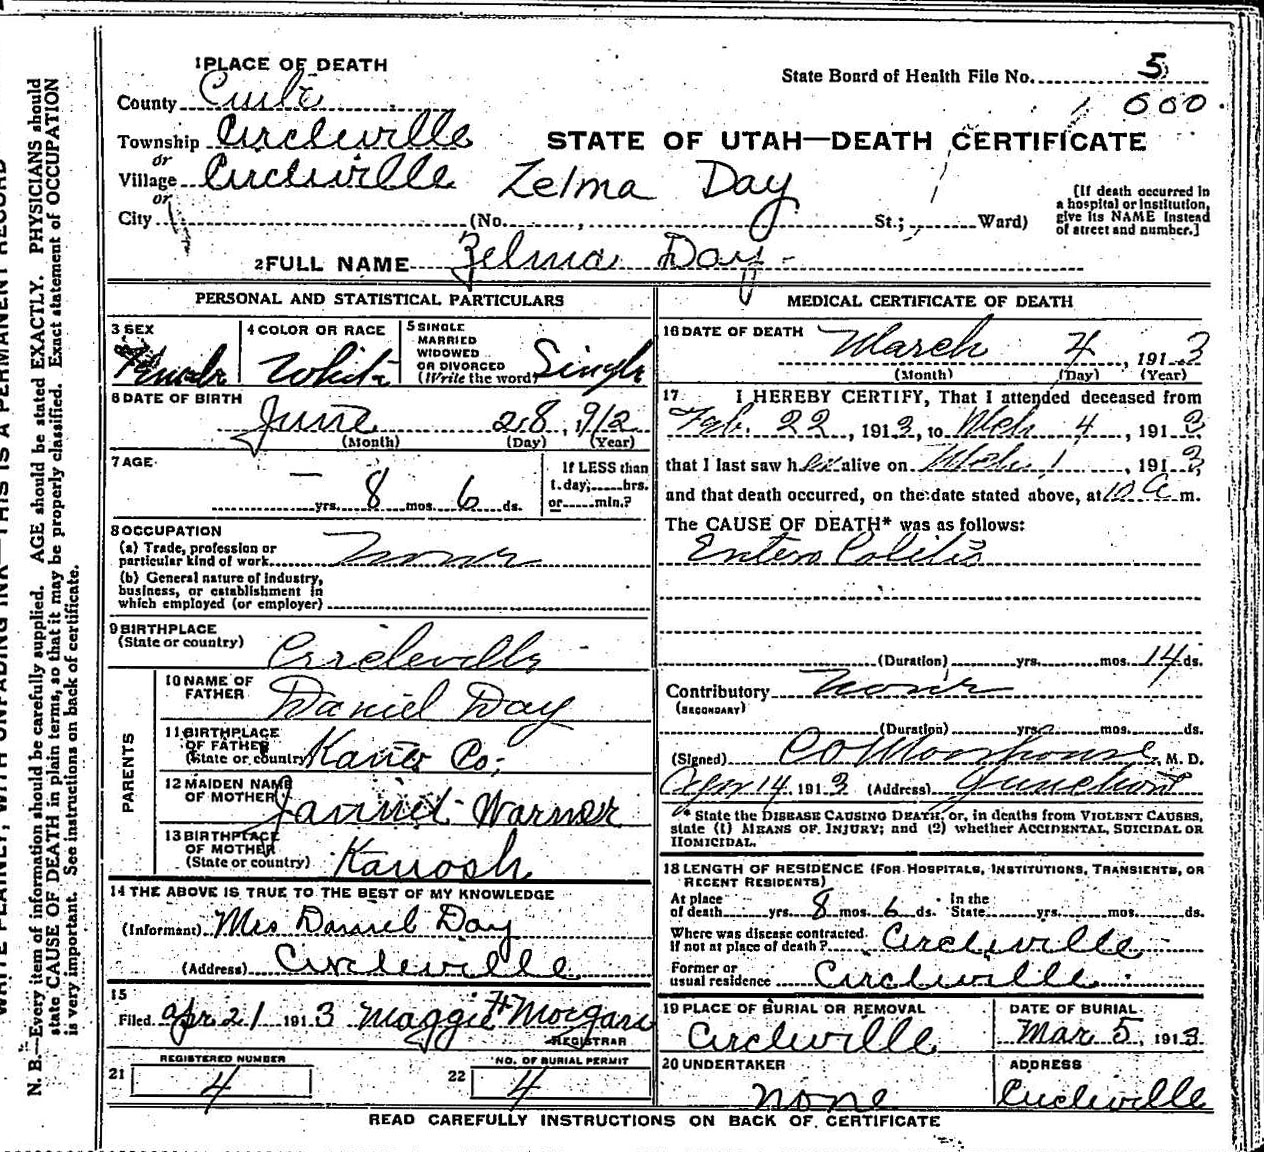 1 PLACE OF DEATH
State Board of Health File No. 5
County
000.
Township Circleville
STATE OF UTAH—DEATH CERTIFICATE
or
Village Circleville Zelma Day
or
City (No. , St.; Ward)
[If death occurred in
a hospital or institution,
give its NAME instead
of street and number.]
2 FULL NAME Zelma Day
PERSONAL AND STATISTICAL PARTICULARS
3 SEX Female
4 COLOR OR RACE White
5 SINGLE
MARRIED
WIDOWED
OR DIVORCED
(Write the word) Single
6 DATE OF BIRTH
June 28, 912
(Month) (Day) (Year)
7 AGE
— yrs. 8 mos. 6 ds.
If LESS than
1 day; hrs.
or min.?
8 OCCUPATION
(a) Trade, profession or
particular kind of work None
(b) General nature of industry,
business, or establishment in
which employed (or employer)
9 BIRTHPLACE
(State or country) Circleville
PARENTS
10 NAME OF
FATHER Daniel Day
11 BIRTHPLACE
OF FATHER
(State or country) Kane Co.
12 MAIDEN NAME
OF MOTHER Warner
13 BIRTHPLACE
OF MOTHER
(State or country) Kanosh
14 THE ABOVE IS TRUE TO THE BEST OF MY KNOWLEDGE
(Informant) Mrs Daniel Day
(Address) Circleville
15
Filed Apr 21 1913 Maggie Morgan
REGISTRAR
REGISTERED NUMBER
21 4
NO. OF BURIAL PERMIT
22 4
MEDICAL CERTIFICATE OF DEATH
16 DATE OF DEATH
March 4, 1913
(Month) (Day) (Year)
17 I HEREBY CERTIFY, That I attended deceased from
Feb. 22, 1913, to Mch 4, 1913
that I last saw her alive on Mch 1, 1913,
and that death occurred, on the date stated above, at 10 a m.
The CAUSE OF DEATH* was as follows:
Entero Colitis
(Duration) yrs. mos. 14 ds.
Contributory None
(SECONDARY)
(Duration) yrs. mos. ds.
(Signed) M. D.
Apr 14 1913 (Address) Junction
* State the DISEASE CAUSING DEATH, or, in deaths from VIOLENT CAUSES,
state (1) MEANS OF INJURY; and (2) whether ACCIDENTAL, SUICIDAL OR
HOMICIDAL.
18 LENGTH OF RESIDENCE (FOR HOSPITALS, INSTITUTIONS, TRANSIENTS, OR
RECENT RESIDENTS)
At place
of death yrs. 8 mos. 6 ds.
In the
State yrs. mos. ds.
Where was disease contracted
If not at place of death? Circleville
Former or
usual residence Circleville
19 PLACE OF BURIAL OR REMOVAL
Circleville
DATE OF BURIAL
Mar 5, 1913
20 UNDERTAKER
none
ADDRESS
Circleville
READ CAREFULLY INSTRUCTIONS ON BACK OF CERTIFICATE
N. B.—Every item of information should be carefully supplied. AGE should be stated EXACTLY. PHYSICIANS should
state CAUSE OF DEATH in plain terms, so that it may be properly classified. Exact statement of OCCUPATION
is very important. See instructions on back of certificate.